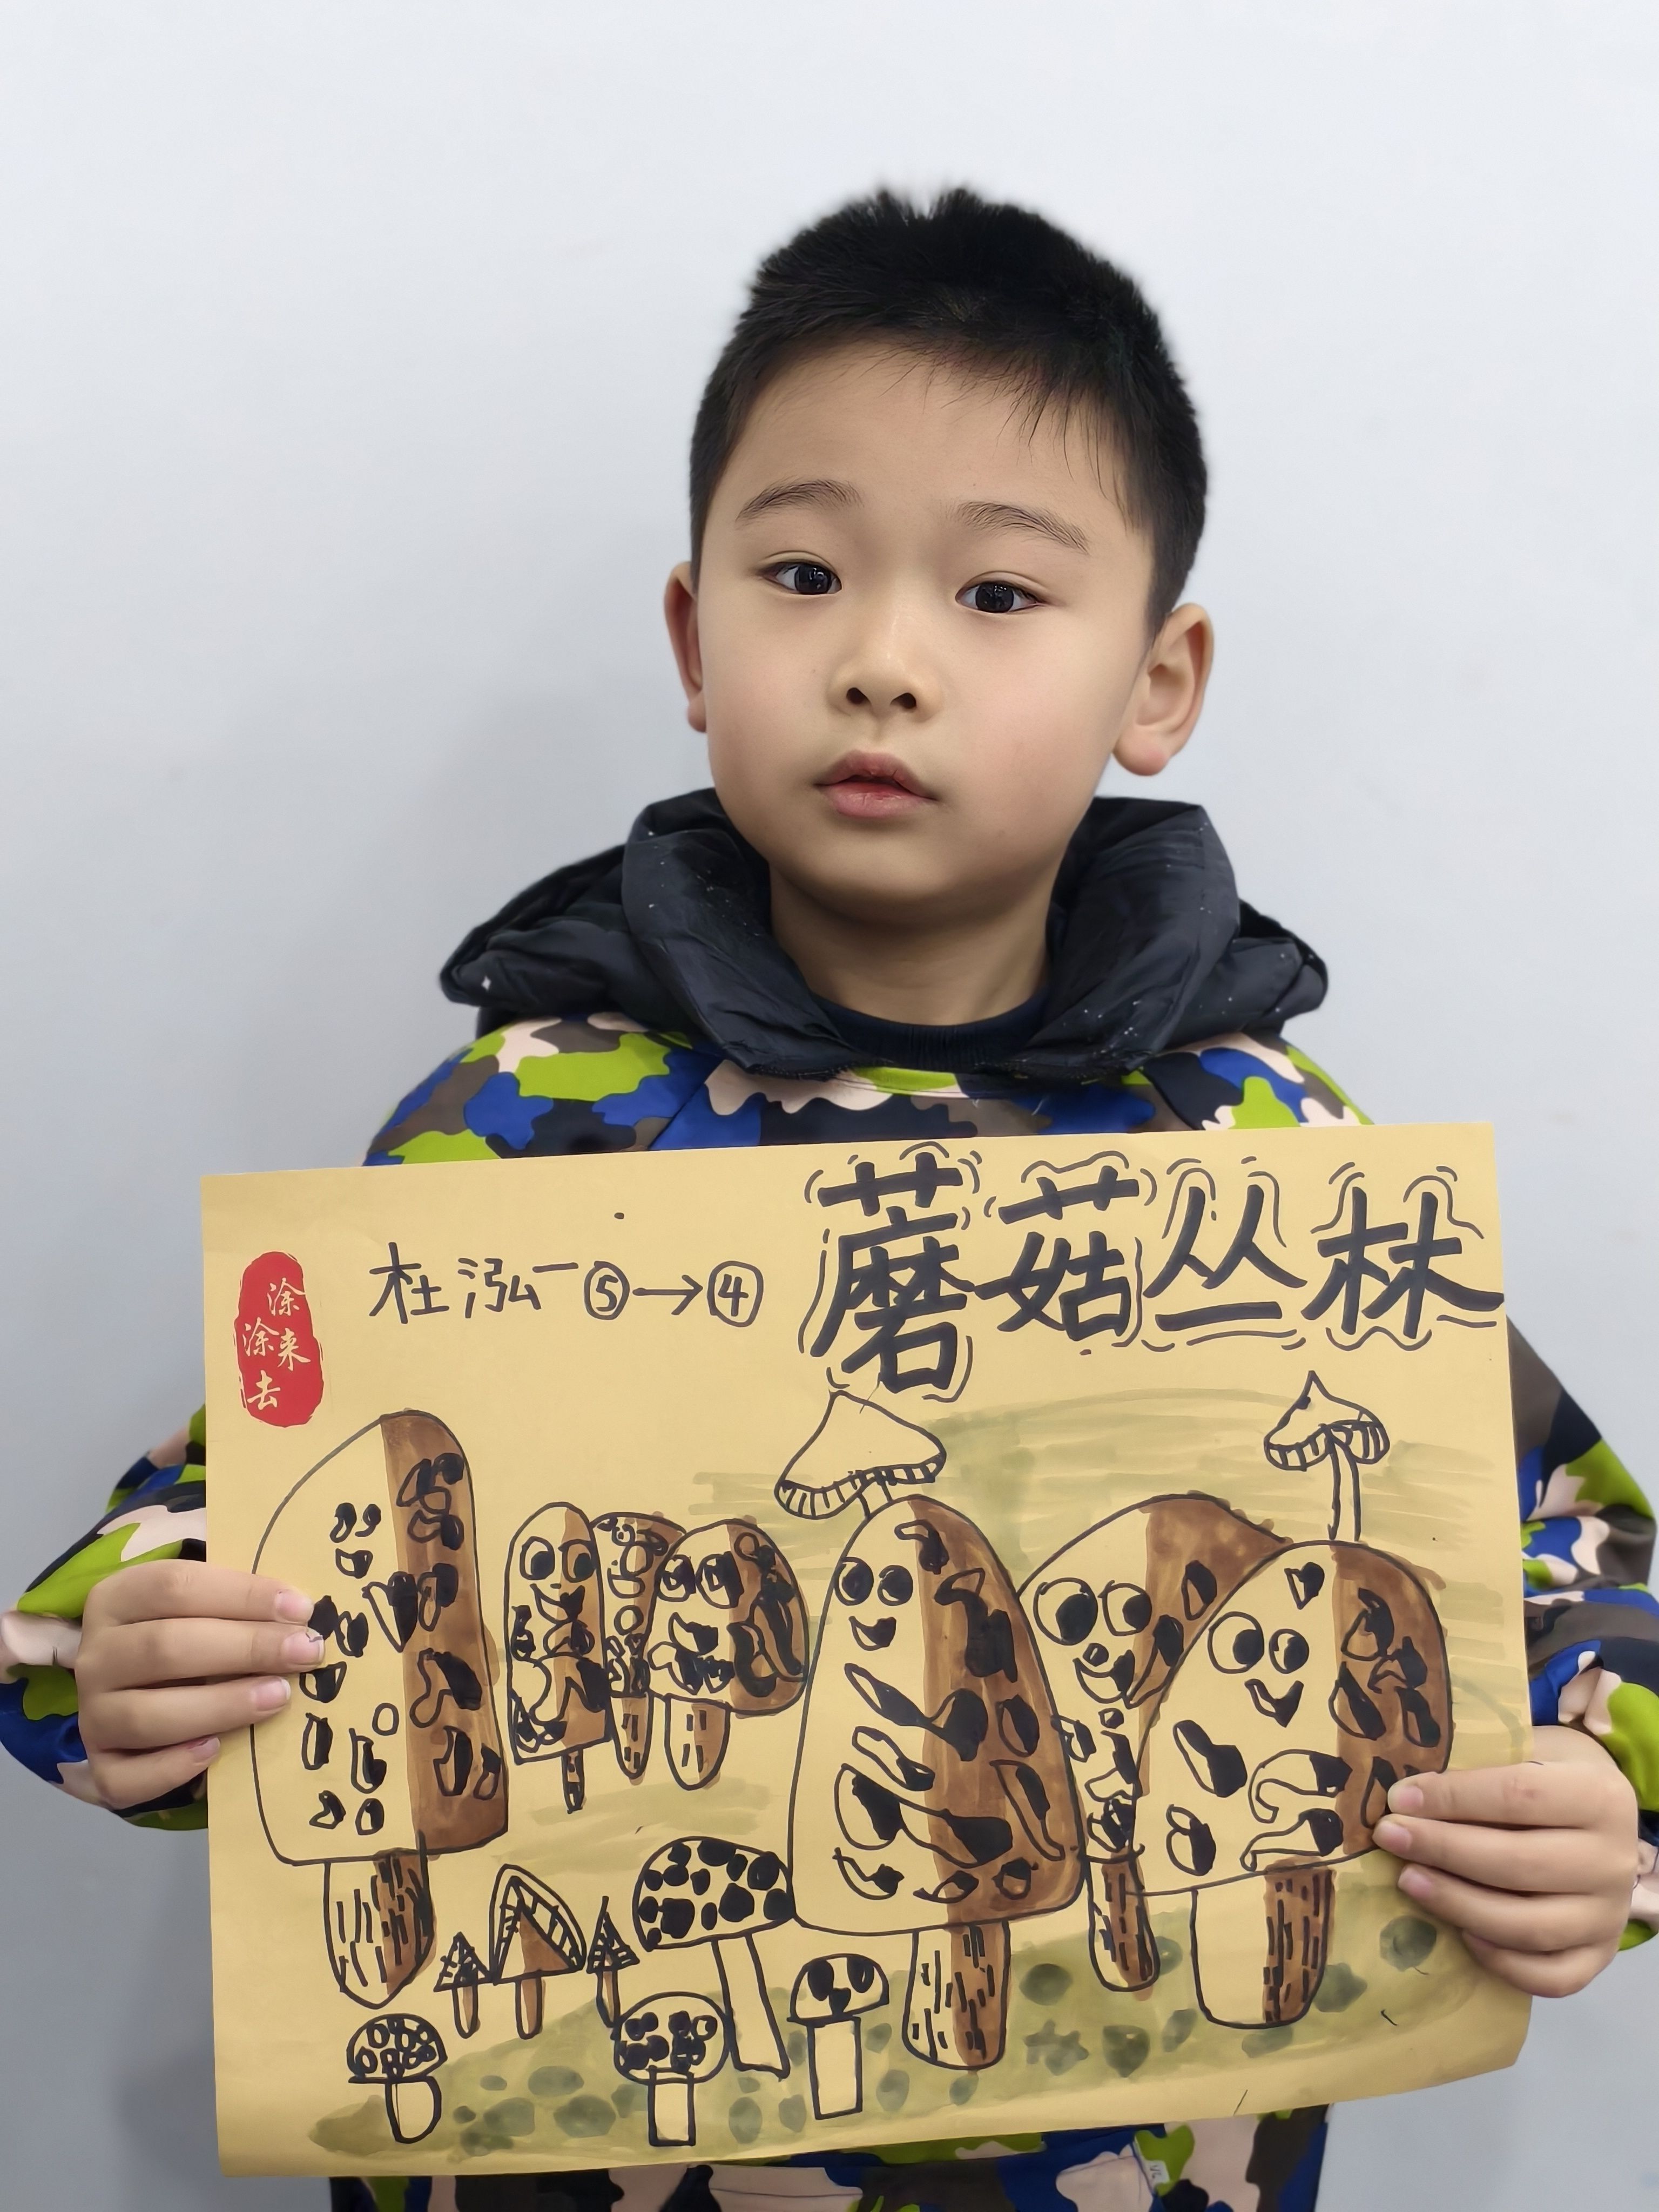 蘑菇丛林
杜泓一⑤→④
涂涂来去